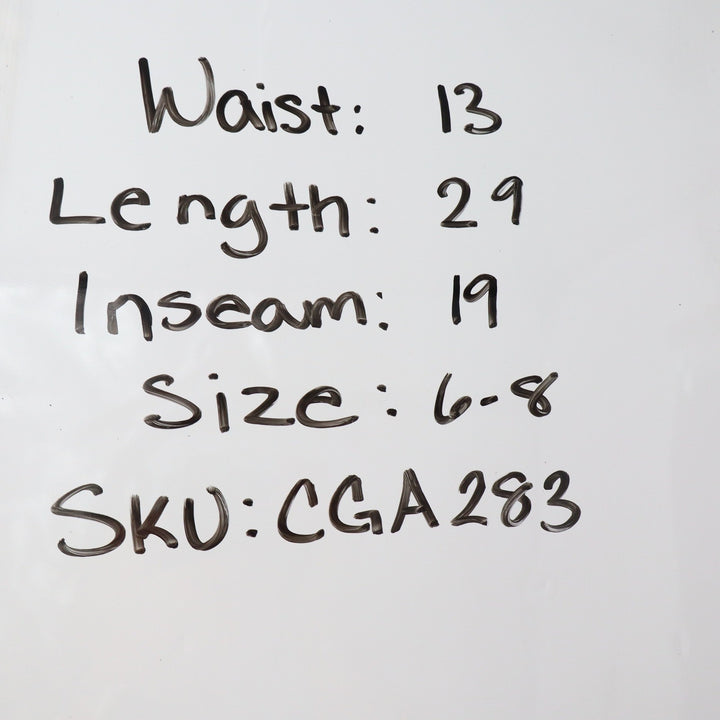 Waist: 13
Length: 29
Inseam: 19
Size: 6-8
SKU: CGA283